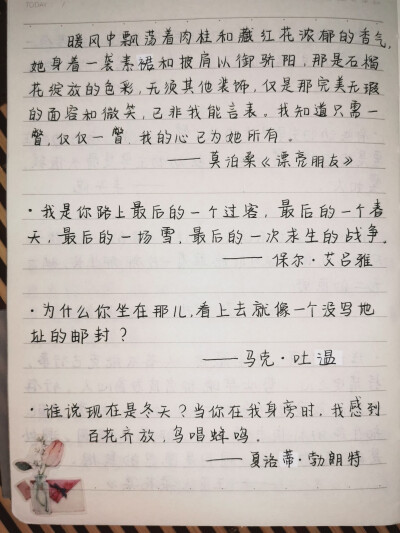 暖风中飘荡着肉桂和藏红花浓郁的香气,
她身着一袭素裙和披肩以御骄阳,那是石榴
花绽放的色彩,无须其他装饰,仅是那完美无瑕
的面容和微笑,已非我能言表。我知道只需一
瞥,仅仅一瞥,我的心已为她所有。
——莫泊桑《漂亮朋友》
·我是你路上最后的一个过客,最后的一个春
天,最后的一场雪,最后的一次求生的战争。
——保尔·艾吕雅
·为什么你坐在那儿,看上去就像一个没写地
址的邮封?
——马克·吐温
·谁说现在是冬天?当你在我身旁时,我感到
百花齐放,鸟唱蝉鸣.
——夏洛蒂·勃朗特